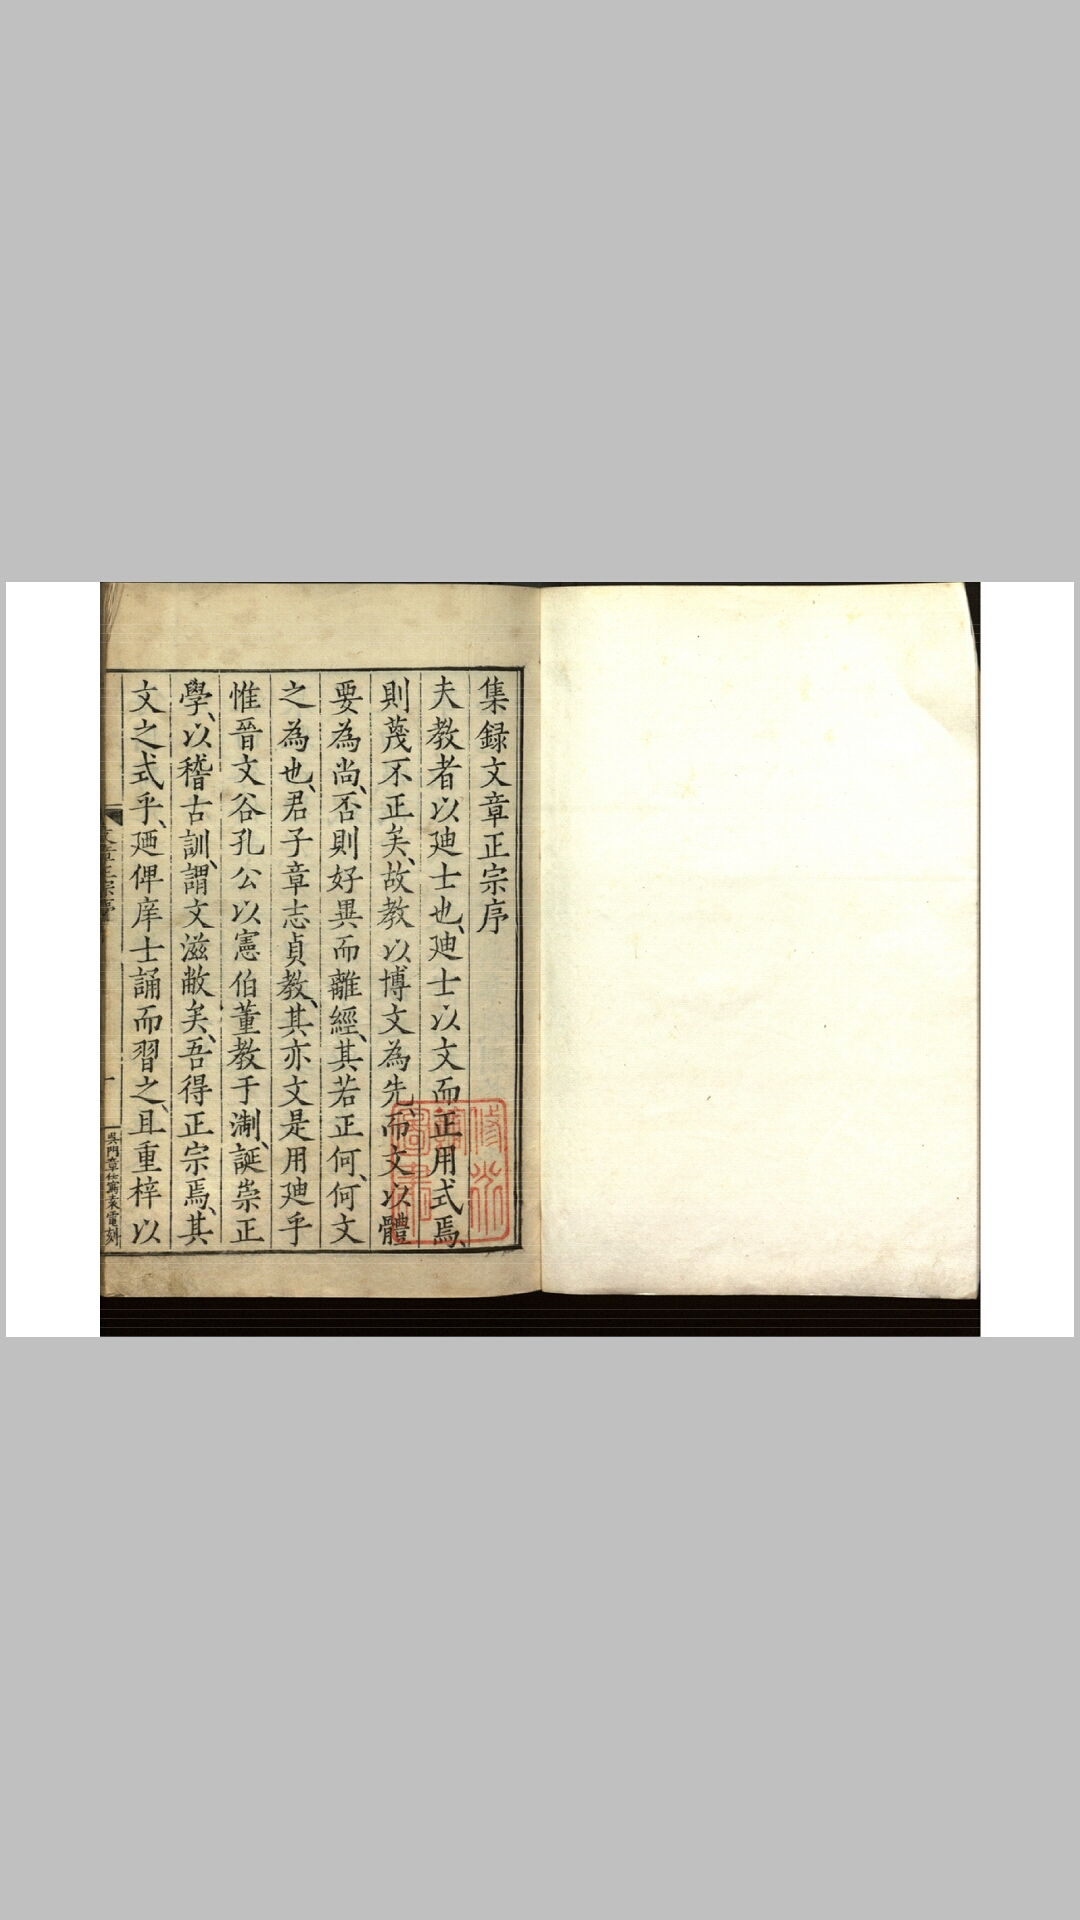 集録文章正宗序
夫教者以廸士也廸士以文而正用式焉
則蔑不正矣故教以博文為先而文以體
要為尚否則好異而離經其若正何何文
之為也君子章志貞教其亦文是用廸乎
惟晉文谷孔公以憲伯董教于淛誕崇正
學以稽古訓謂文滋敝矣吾得正宗焉其
文之式乎廼俾庠士誦而習之且重梓以
文章正宗序
一
吳門章仕 袁電刻
圖書